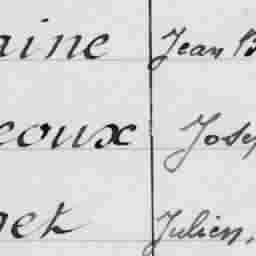 aine Jean B
eoux Josep
net Julien,